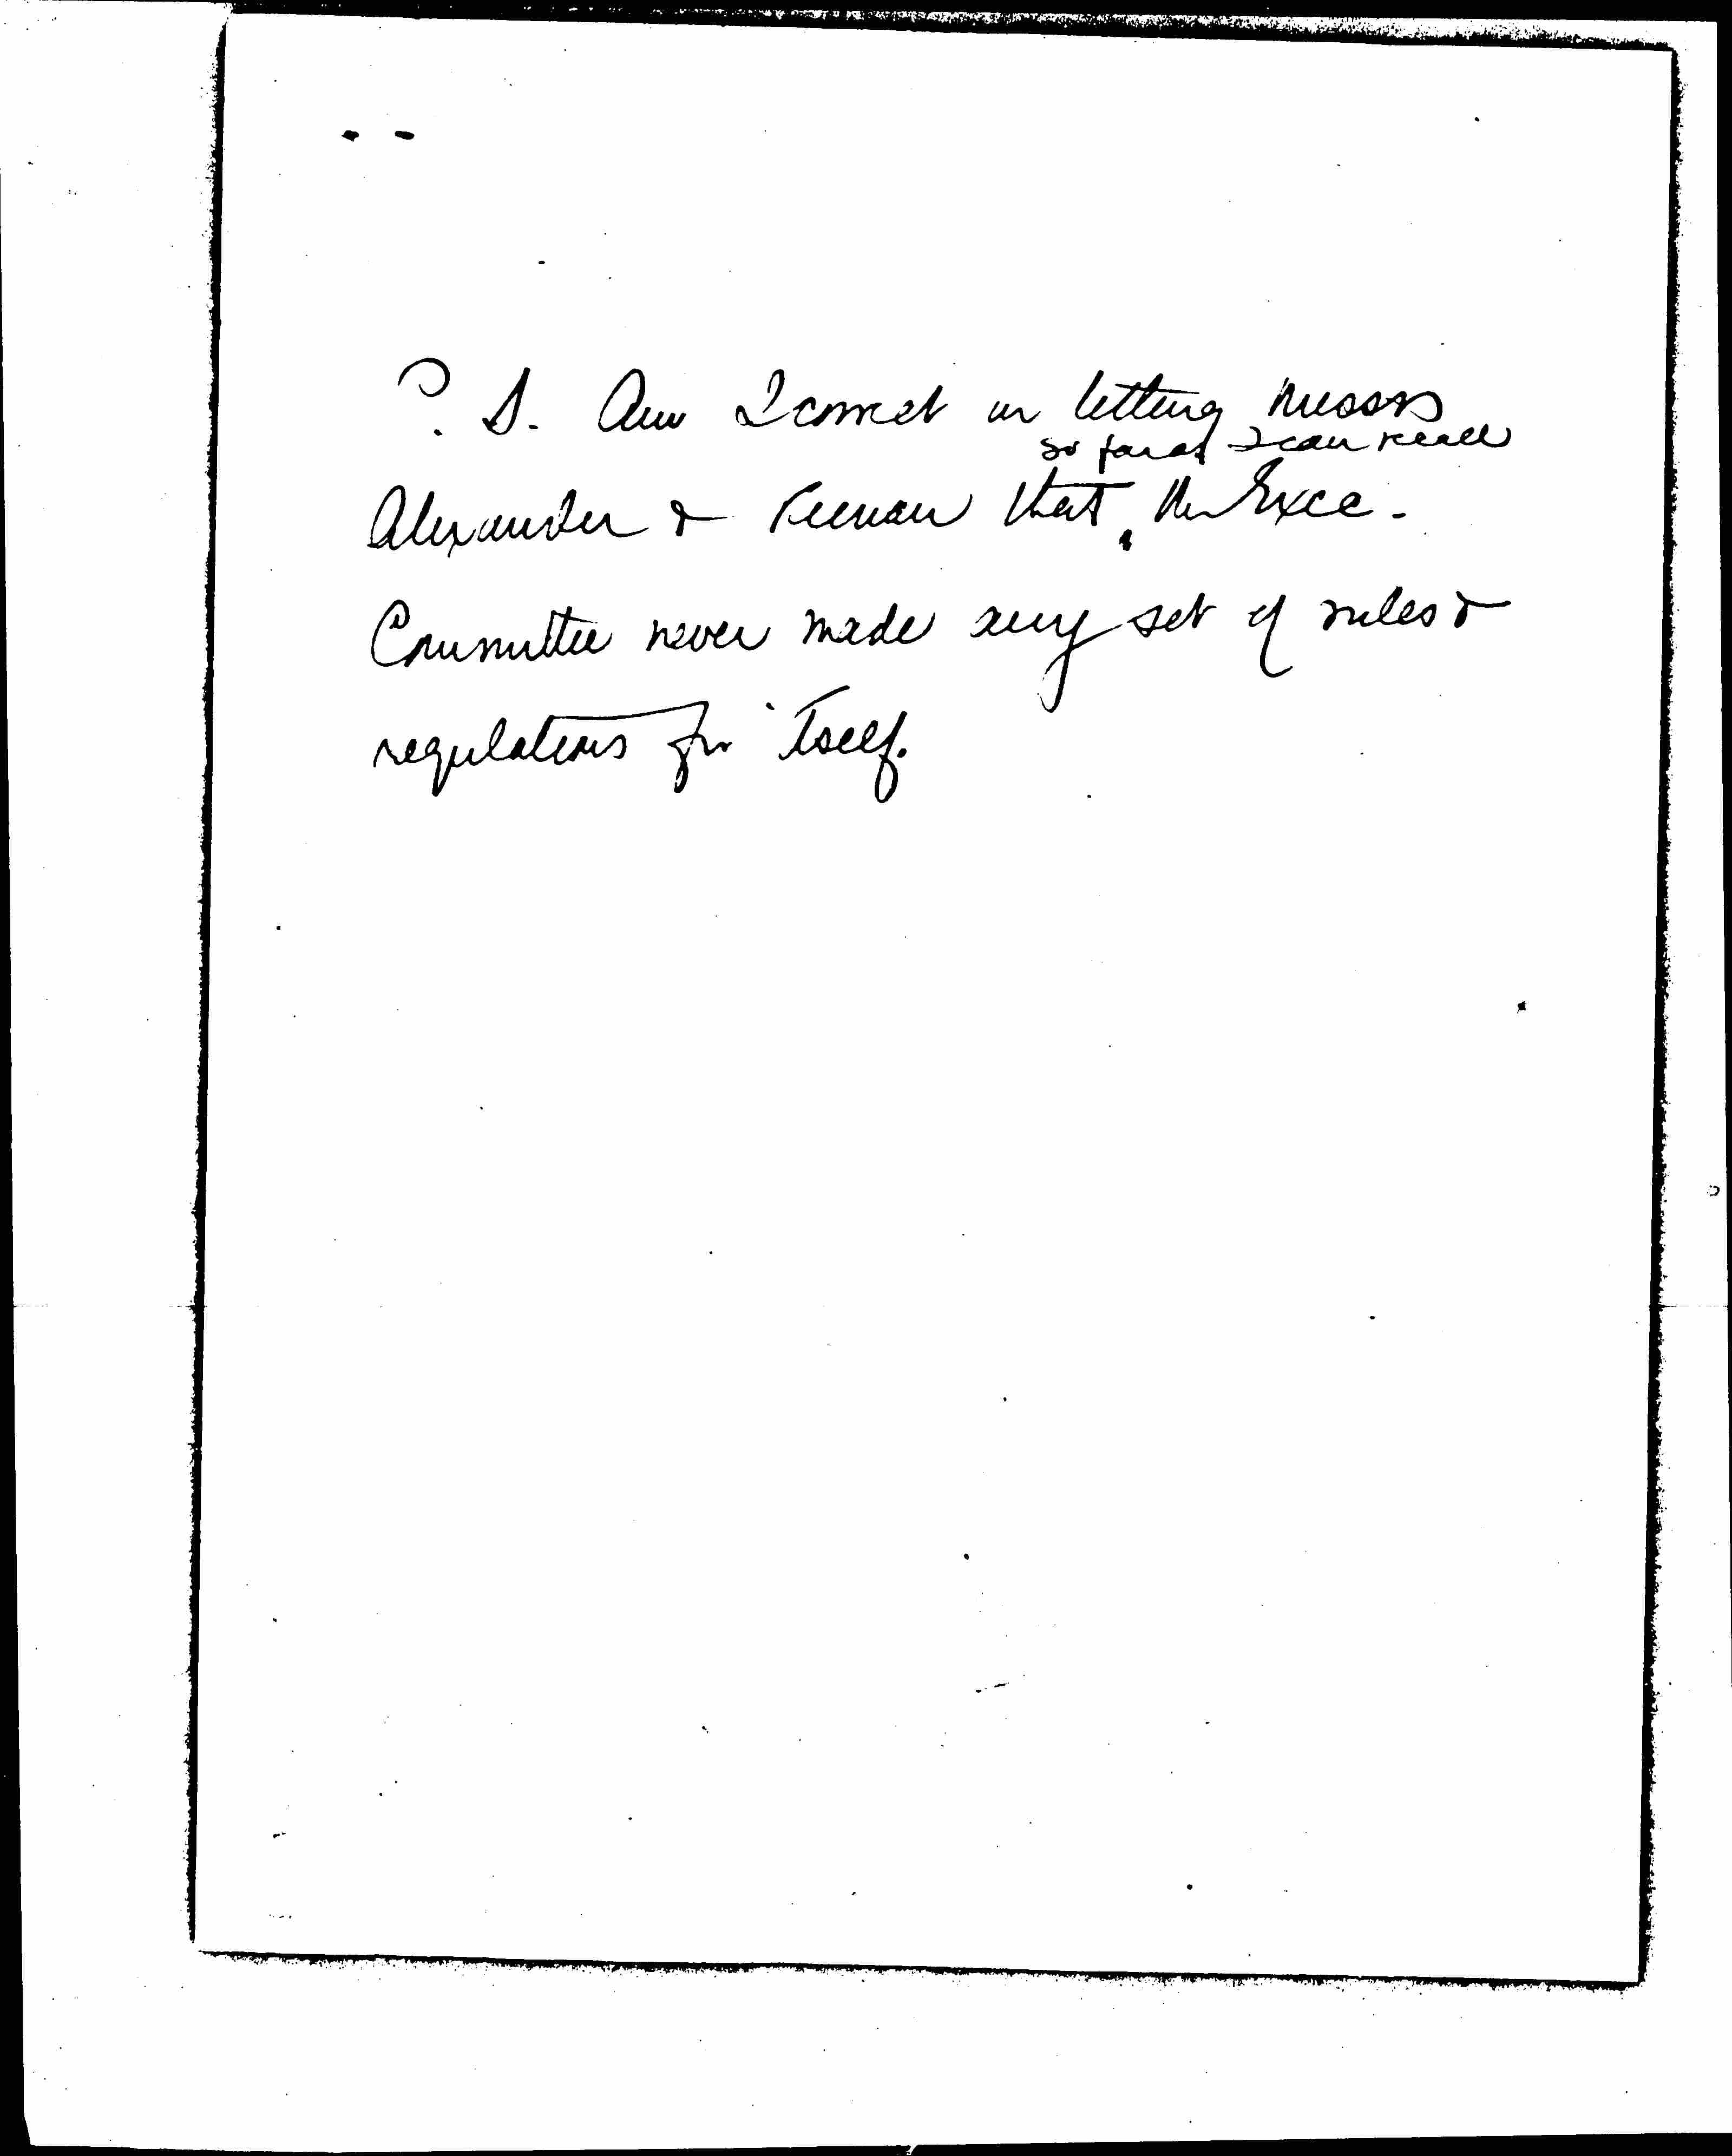 P. S. Am I correct in letting Messrs
so far as I can recall
Alexander & Keenan that the Exec.
Committee never made any set of rules &
regulations for itself.